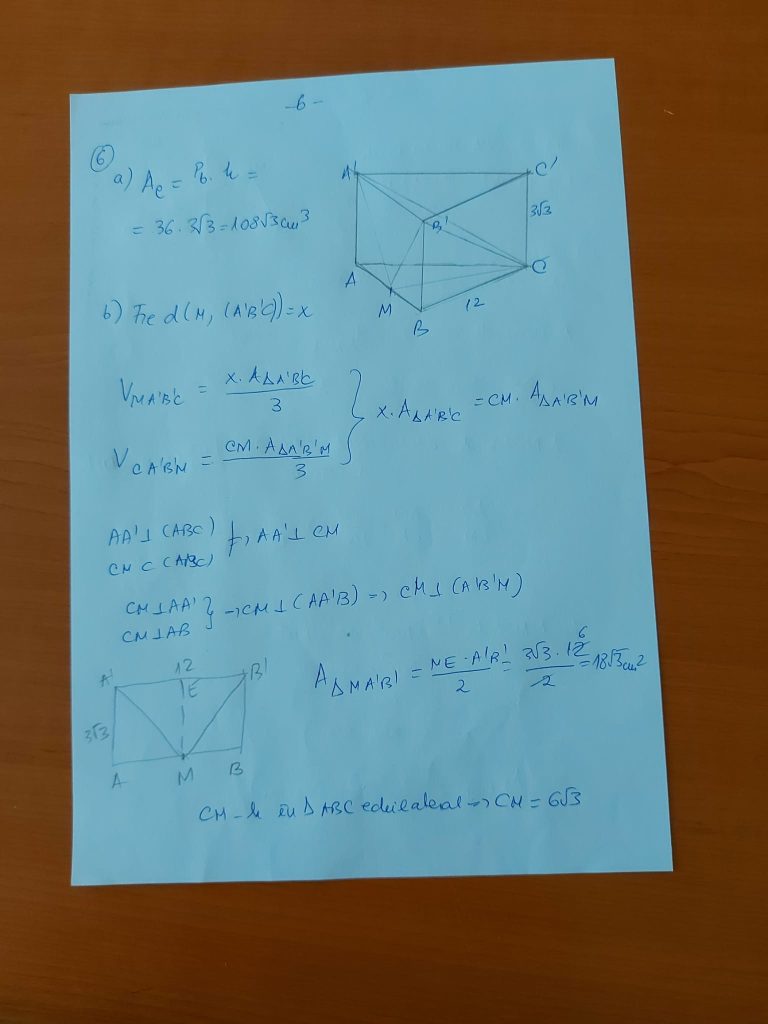 -6-
6
a) Aℓ = Pb · h =
= 36 · 3√3 = 108√3 cm³
A' C'
B'
3√3
A C
M
B
12
b) Fie d(M, (A'B'C)) = x
V MA'B'C = x · A∆A'B'C / 3
V CA'B'M = CM · A∆A'B'M / 3
} x · A∆A'B'C = CM · A∆A'B'M
AA' ⊥ (ABC)
CM ⊂ (ABC)
} => AA' ⊥ CM
CM ⊥ AA'
CM ⊥ AB
} => CM ⊥ (AA'B) => CM ⊥ (A'B'M)
A' 12 B'
E
3√3
A M B
A∆MA'B' = ME · A'B' / 2 = 3√3 · 12 / 2 = 18√3 cm²
6
CM - h în ∆ABC echilateral => CM = 6√3